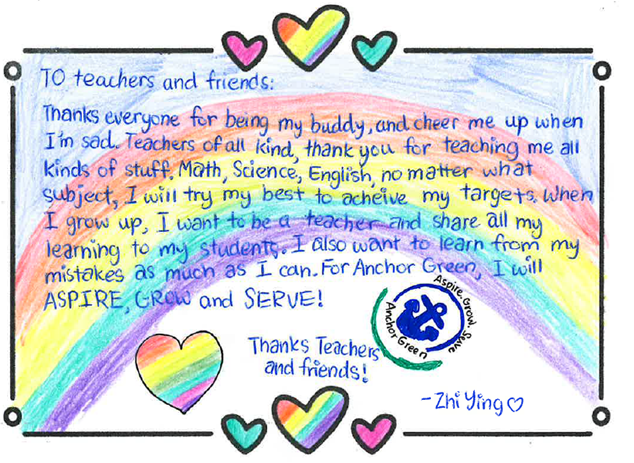 TO teachers and friends:
Thanks everyone for being my buddy, and cheer me up when
I'm sad. Teachers of all kind, thank you for teaching me all
kinds of stuff. Math, Science, English, no matter what
subject, I will try my best to acheive my targets. When
I grow up, I want to be a teacher and share all my
learning to my students. I also want to learn from my
mistakes as much as I can. For Anchor Green, I will
ASPIRE, GROW and SERVE!
Aspire. Grow. Serve
Anchor Green
Thanks Teachers
and friends!
-Zhi Ying♡